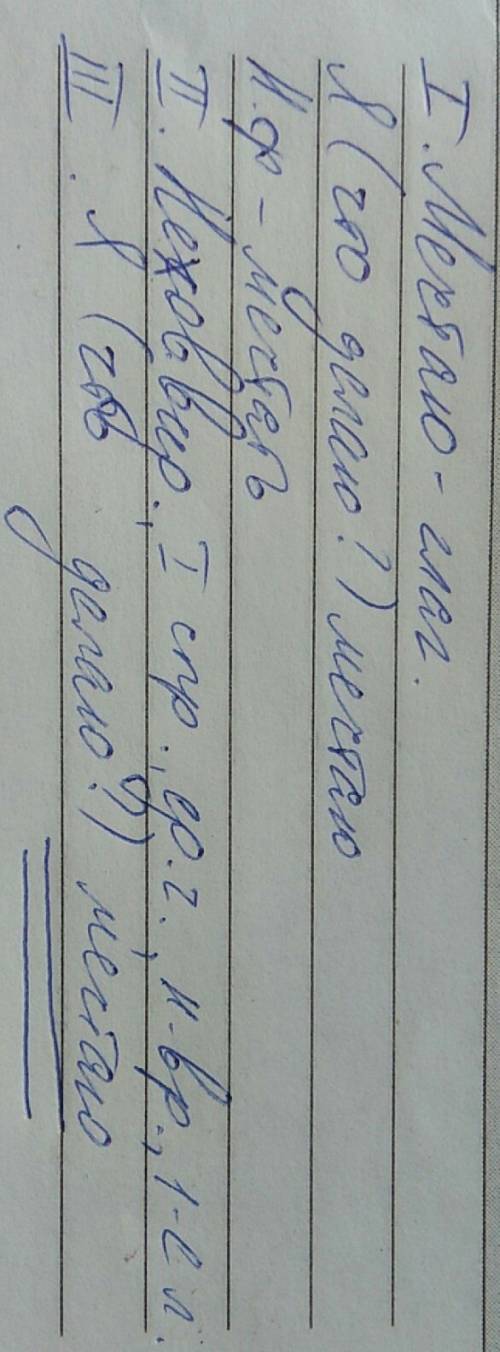 I. Мечтаю - глаг.
Я (что делаю?) мечтаю
Н.ф - мечтать
II. Неховвр., I спр., ед.ч., н-вр., 1-е л.
III. Я (что делаю?) мечтаю